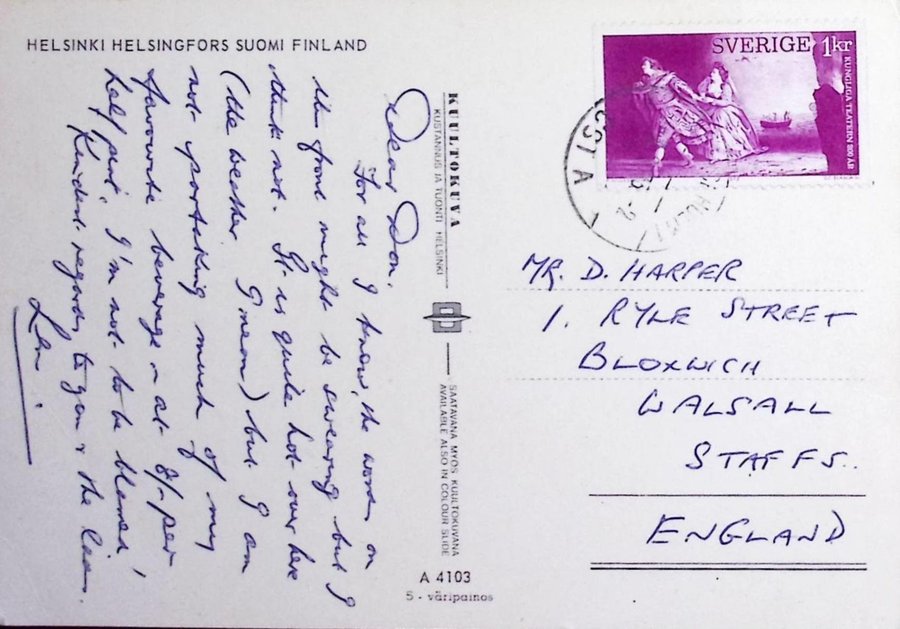 HELSINKI HELSINGFORS SUOMI FINLAND
Dear Don.
For all I know, the words on
the front might be swearing but I
think not. It is quite hot over here
(the weather I mean) but I am
not partaking much of my
favourite beverage – at 8/- per
half pint. I'm not to be blamed!
Kindest regards to you & the
Len.
KUULTOKUVA
KUSTANNUS JA TUONTI HELSINKI
SAATAVANA MYÖS KUULTOKUVANA
AVAILABLE ALSO IN COLOUR SLIDE
A 4103
5 - väripainos
SVERIGE 1kr
KUNGLIGA TEATERN 200 ÅR
STA
MR. D. HARPER
1. RYLE STREET
BLOXWICH
WALSALL
STAFFS.
ENGLAND